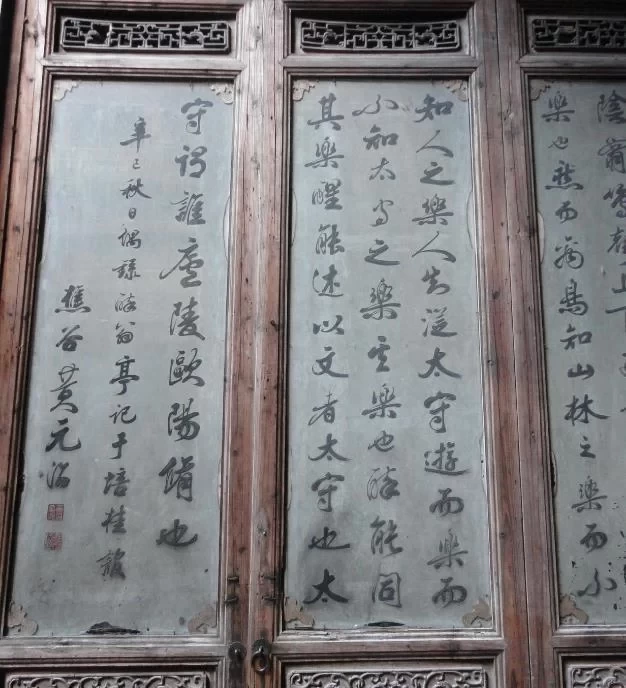 陰翳鳴聲上下
樂也然而禽鳥知山林之樂而不
知人之樂人知從太守遊而樂而
不知太守之樂其樂也醉能同
其樂醒能述以文者太守也太
守謂誰廬陵歐陽脩也
辛巳秋日偶錄醉翁亭記于培桂
樵谷黃元